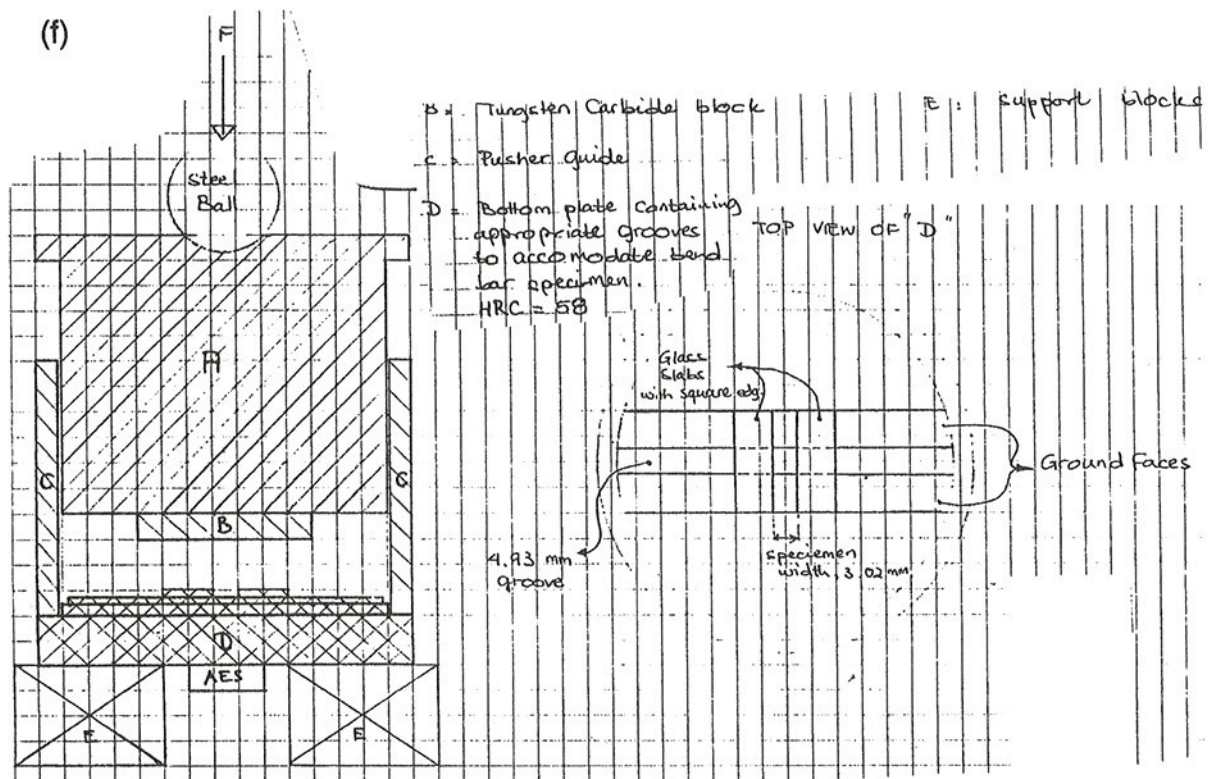 (f)
F
Steel
Ball
A
C
C
B
D
AES
E
E
B = Tungsten Carbide block
E : support blocks
C = Pusher guide
D = Bottom plate containing
appropriate grooves
to accomodate bend
bar specimen.
HRC = 58
TOP VIEW OF "D"
Glass
Slabs
with square edg.
Ground Faces
4.93 mm
groove
speciemen
width, 3.02 mm